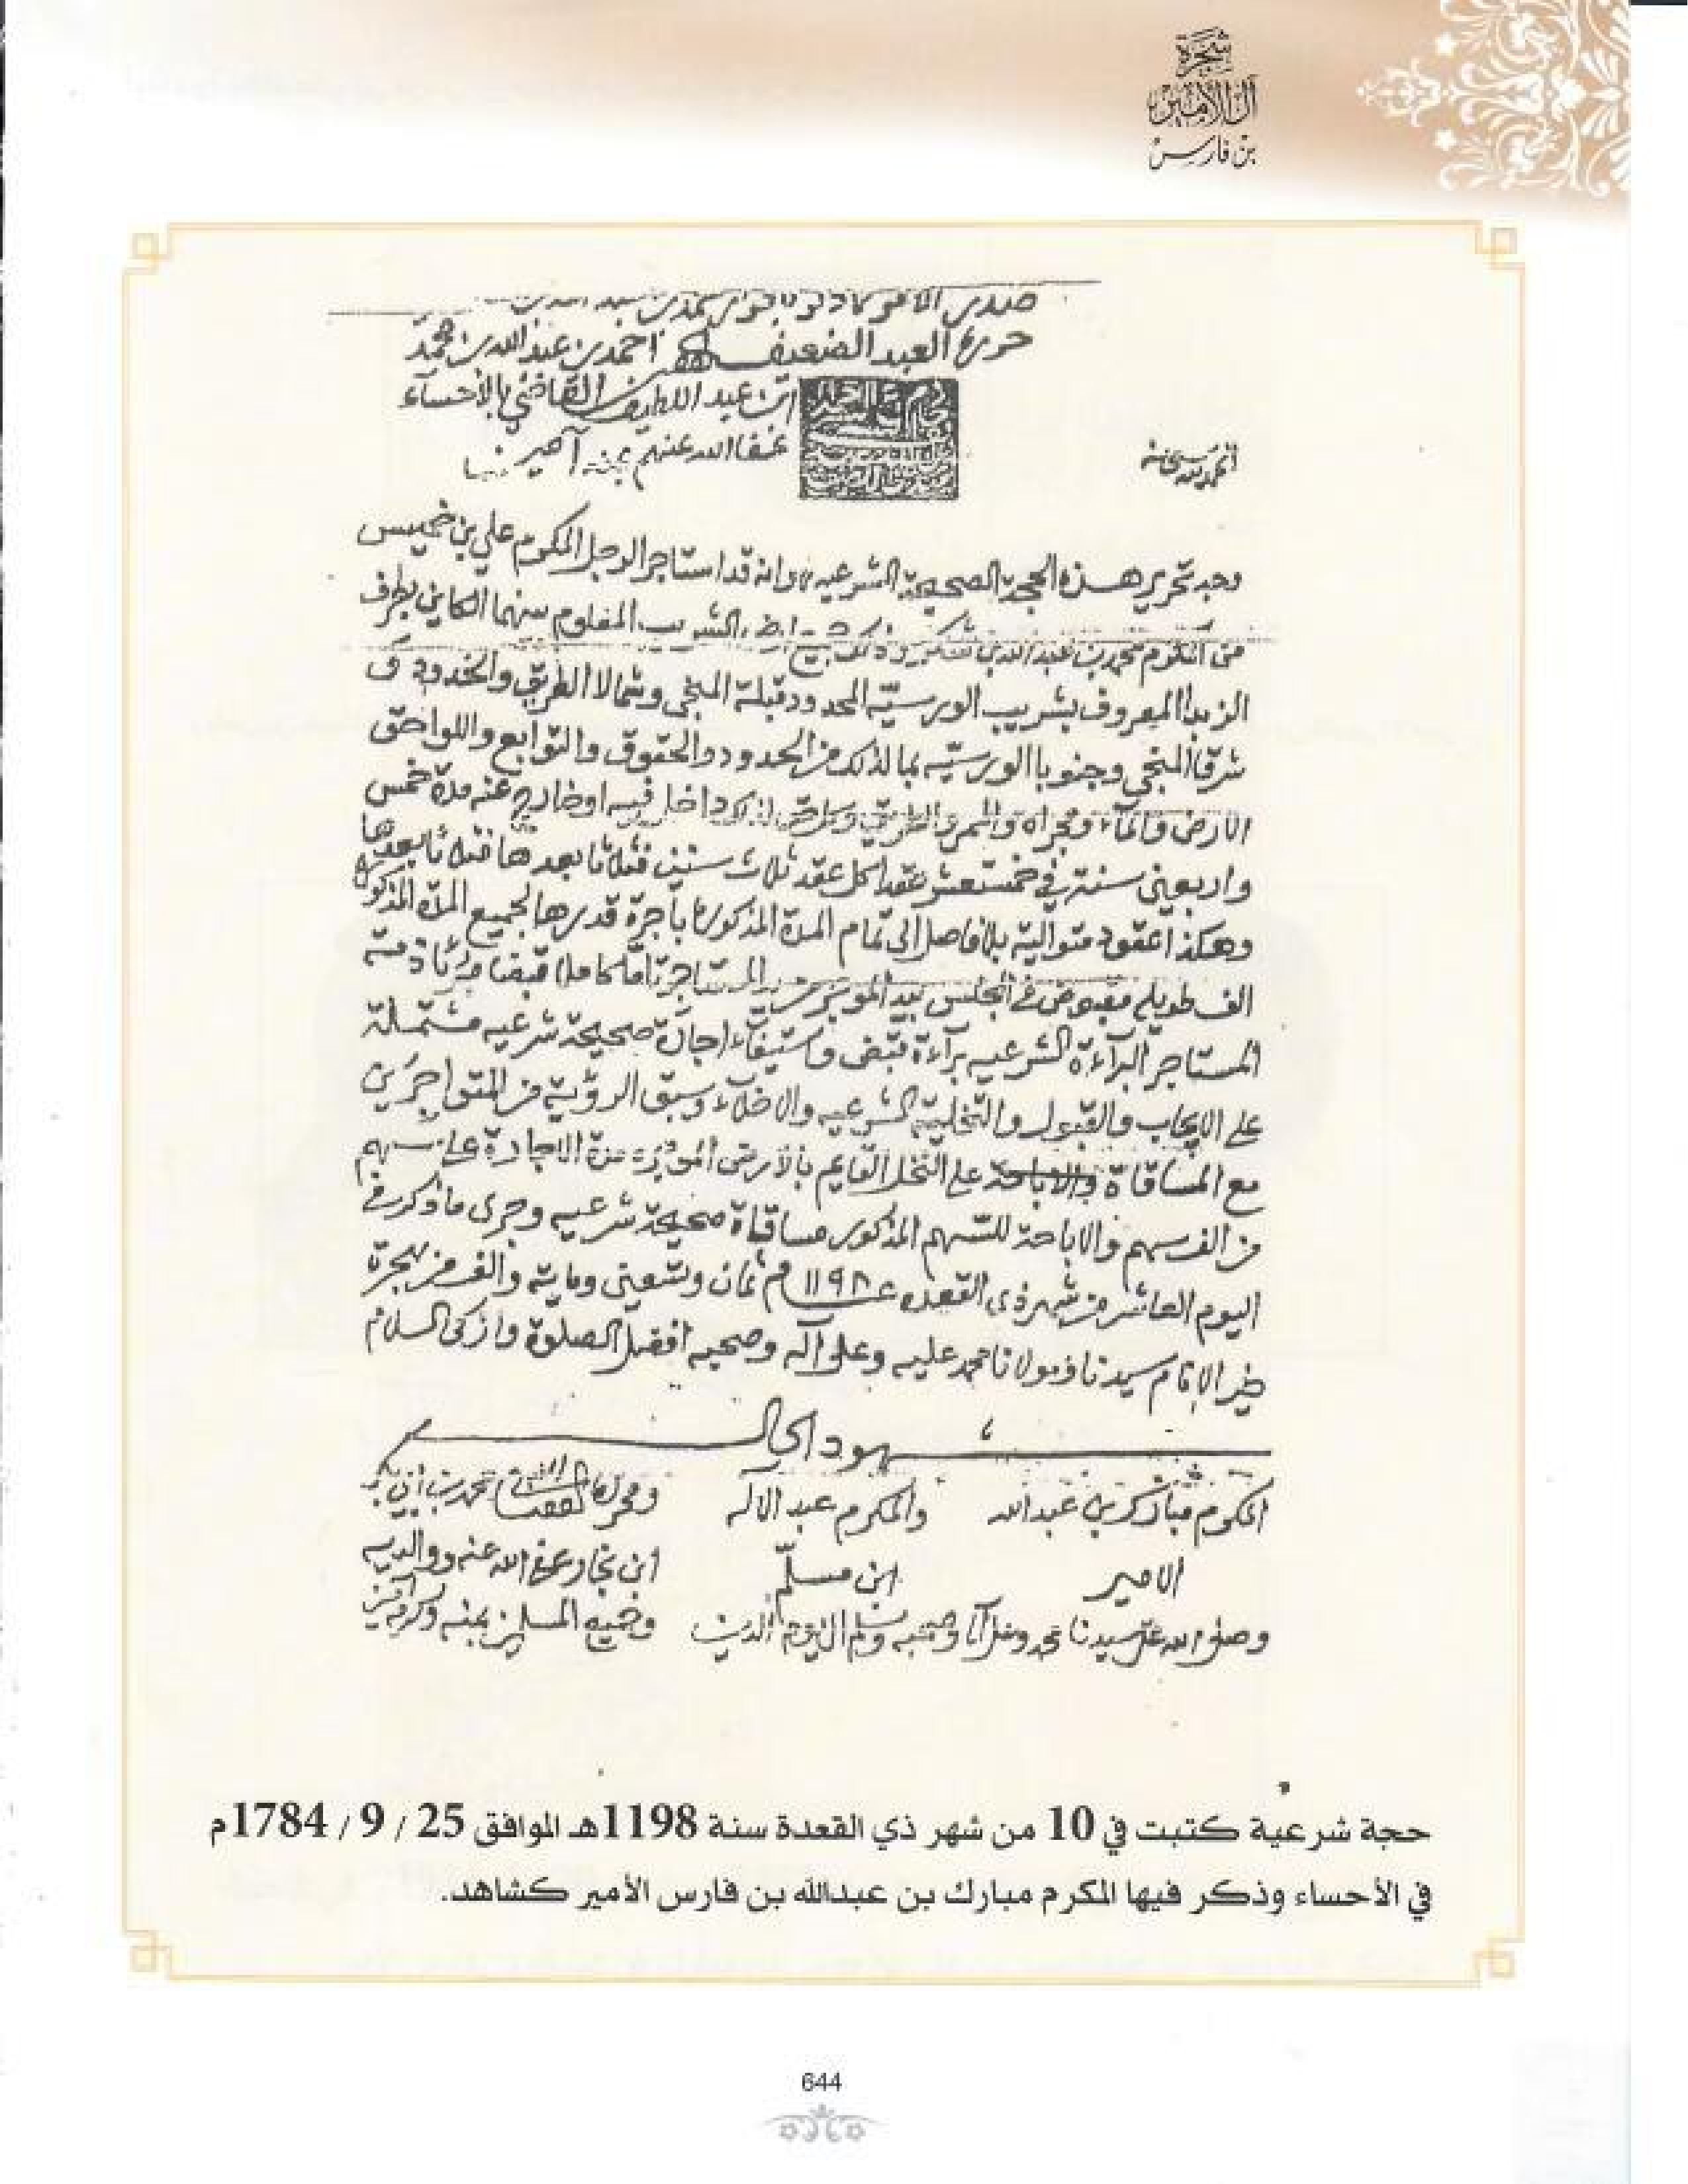 شجرة
آل الأمير
بن فارس
حرره العبد الضعيف احمد بن عبد الله بن محمد
ابن عبد اللطيف القاضي بالأحساء
عفا الله عنهم بمنه آمين
الحمد لله سبحانه
وجه تحرير هذه الحجة الصحيحة الشرعيه هو انه قد استاجر الرجل المكرم علي بن خميس
من المكرم محمد بن عبد الله بن الشريب المعلوم الكاين بطرف
المعروف بشريب الورسيّه المحدود قبلة المنجى وشمالا الطريق والحدود
شرقا المنجى وجنوبا الورسيّه بما لذلك من الحدود والحقوق والتوابع واللواحق
الارض والمآء ومجراه والممر والطريق وكل حق لذلك داخل فيه او خارج عنه مدة خمس
واربعين سنة في خمستعشر عقدا كل عقد ثلاث سنين فثلاثا بعدها فثلاثا بعدها
وهكذا عقود متوالية بلا فاصل الى تمام المدة المذكورة باجرة قدرها لجميع المدة المذكورة
الف طويلة مقبوض في المجلس بيد الموجر من المستاجر تاما كاملا قبضا مبرئا ذمته
المستاجر البرآءة الشرعيه برآءة قبض واستيفآء اجارة صحيحة شرعيه مشتملة
على الايجاب والقبول والتخلية الشرعيه والاخلآء وسبق الرؤية من المتواجرين
مع المساقاة والاباحة على النخل القايم بالارض مدة الاجارة على سهم
من الف سهم والاباحة للسهم المذكور مساقاة صحيحة شرعيه وجرى ما ذكر في
اليوم العاشر من شهر ذي القعده ١١٩٨ ثمان وتسعين وماية والف من هجرة
خير الانام سيدنا ومولانا محمد عليه وعلى آله وصحبه افضل الصلوة وازكى السلام
شهود الحال
المكرم مبارك بن عبد الله والمكرم عبد الاله محمد بن
الامير ابن مسلّم ابن عفا الله عنه ووالديه
وصلى الله على سيدنا محمد وعلى آله وصحبه وسلم الى يوم الدين وجميع المسلمين بمنه وكرمه آمين
حجة شرعية كتبت في 10 من شهر ذي القعدة سنة 1198هـ الموافق 25 / 9 / 1784م
في الأحساء وذكر فيها المكرم مبارك بن عبدالله بن فارس الأمير كشاهد.
644